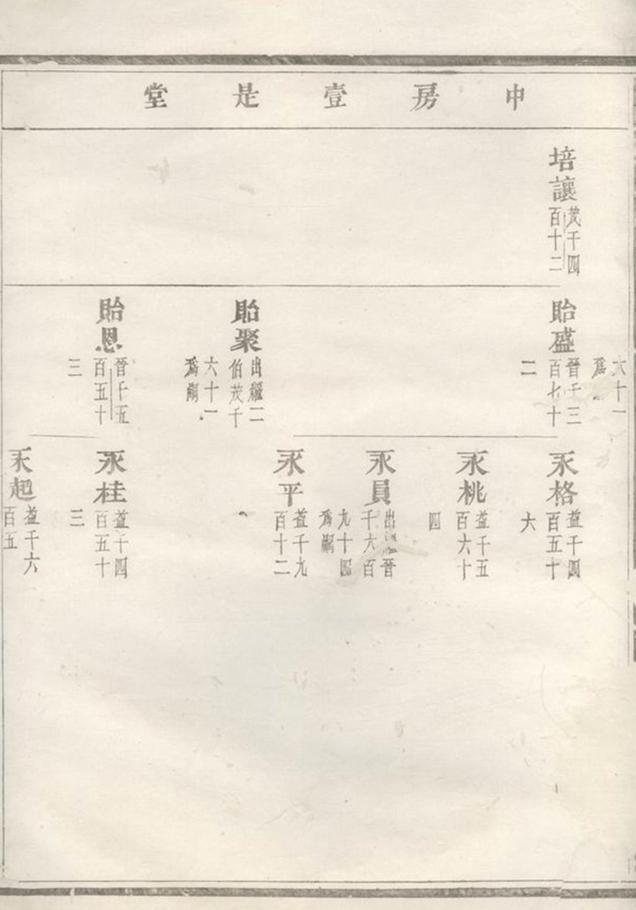 中房壹是堂
培讓
茂千四
百十二
六十一
為
貽盛
晉千三
百七十
二
貽聚
出繼二
伯茂千
六十一
為嗣
貽恩
晉千五
百五十
三
永格
益千四
百五十
六
永桃
益千五
百六十
四
永員
出繼晉
千六百
九十四
為嗣
永平
益千九
百十二
永桂
益千四
百五十
三
永起
益千六
百五